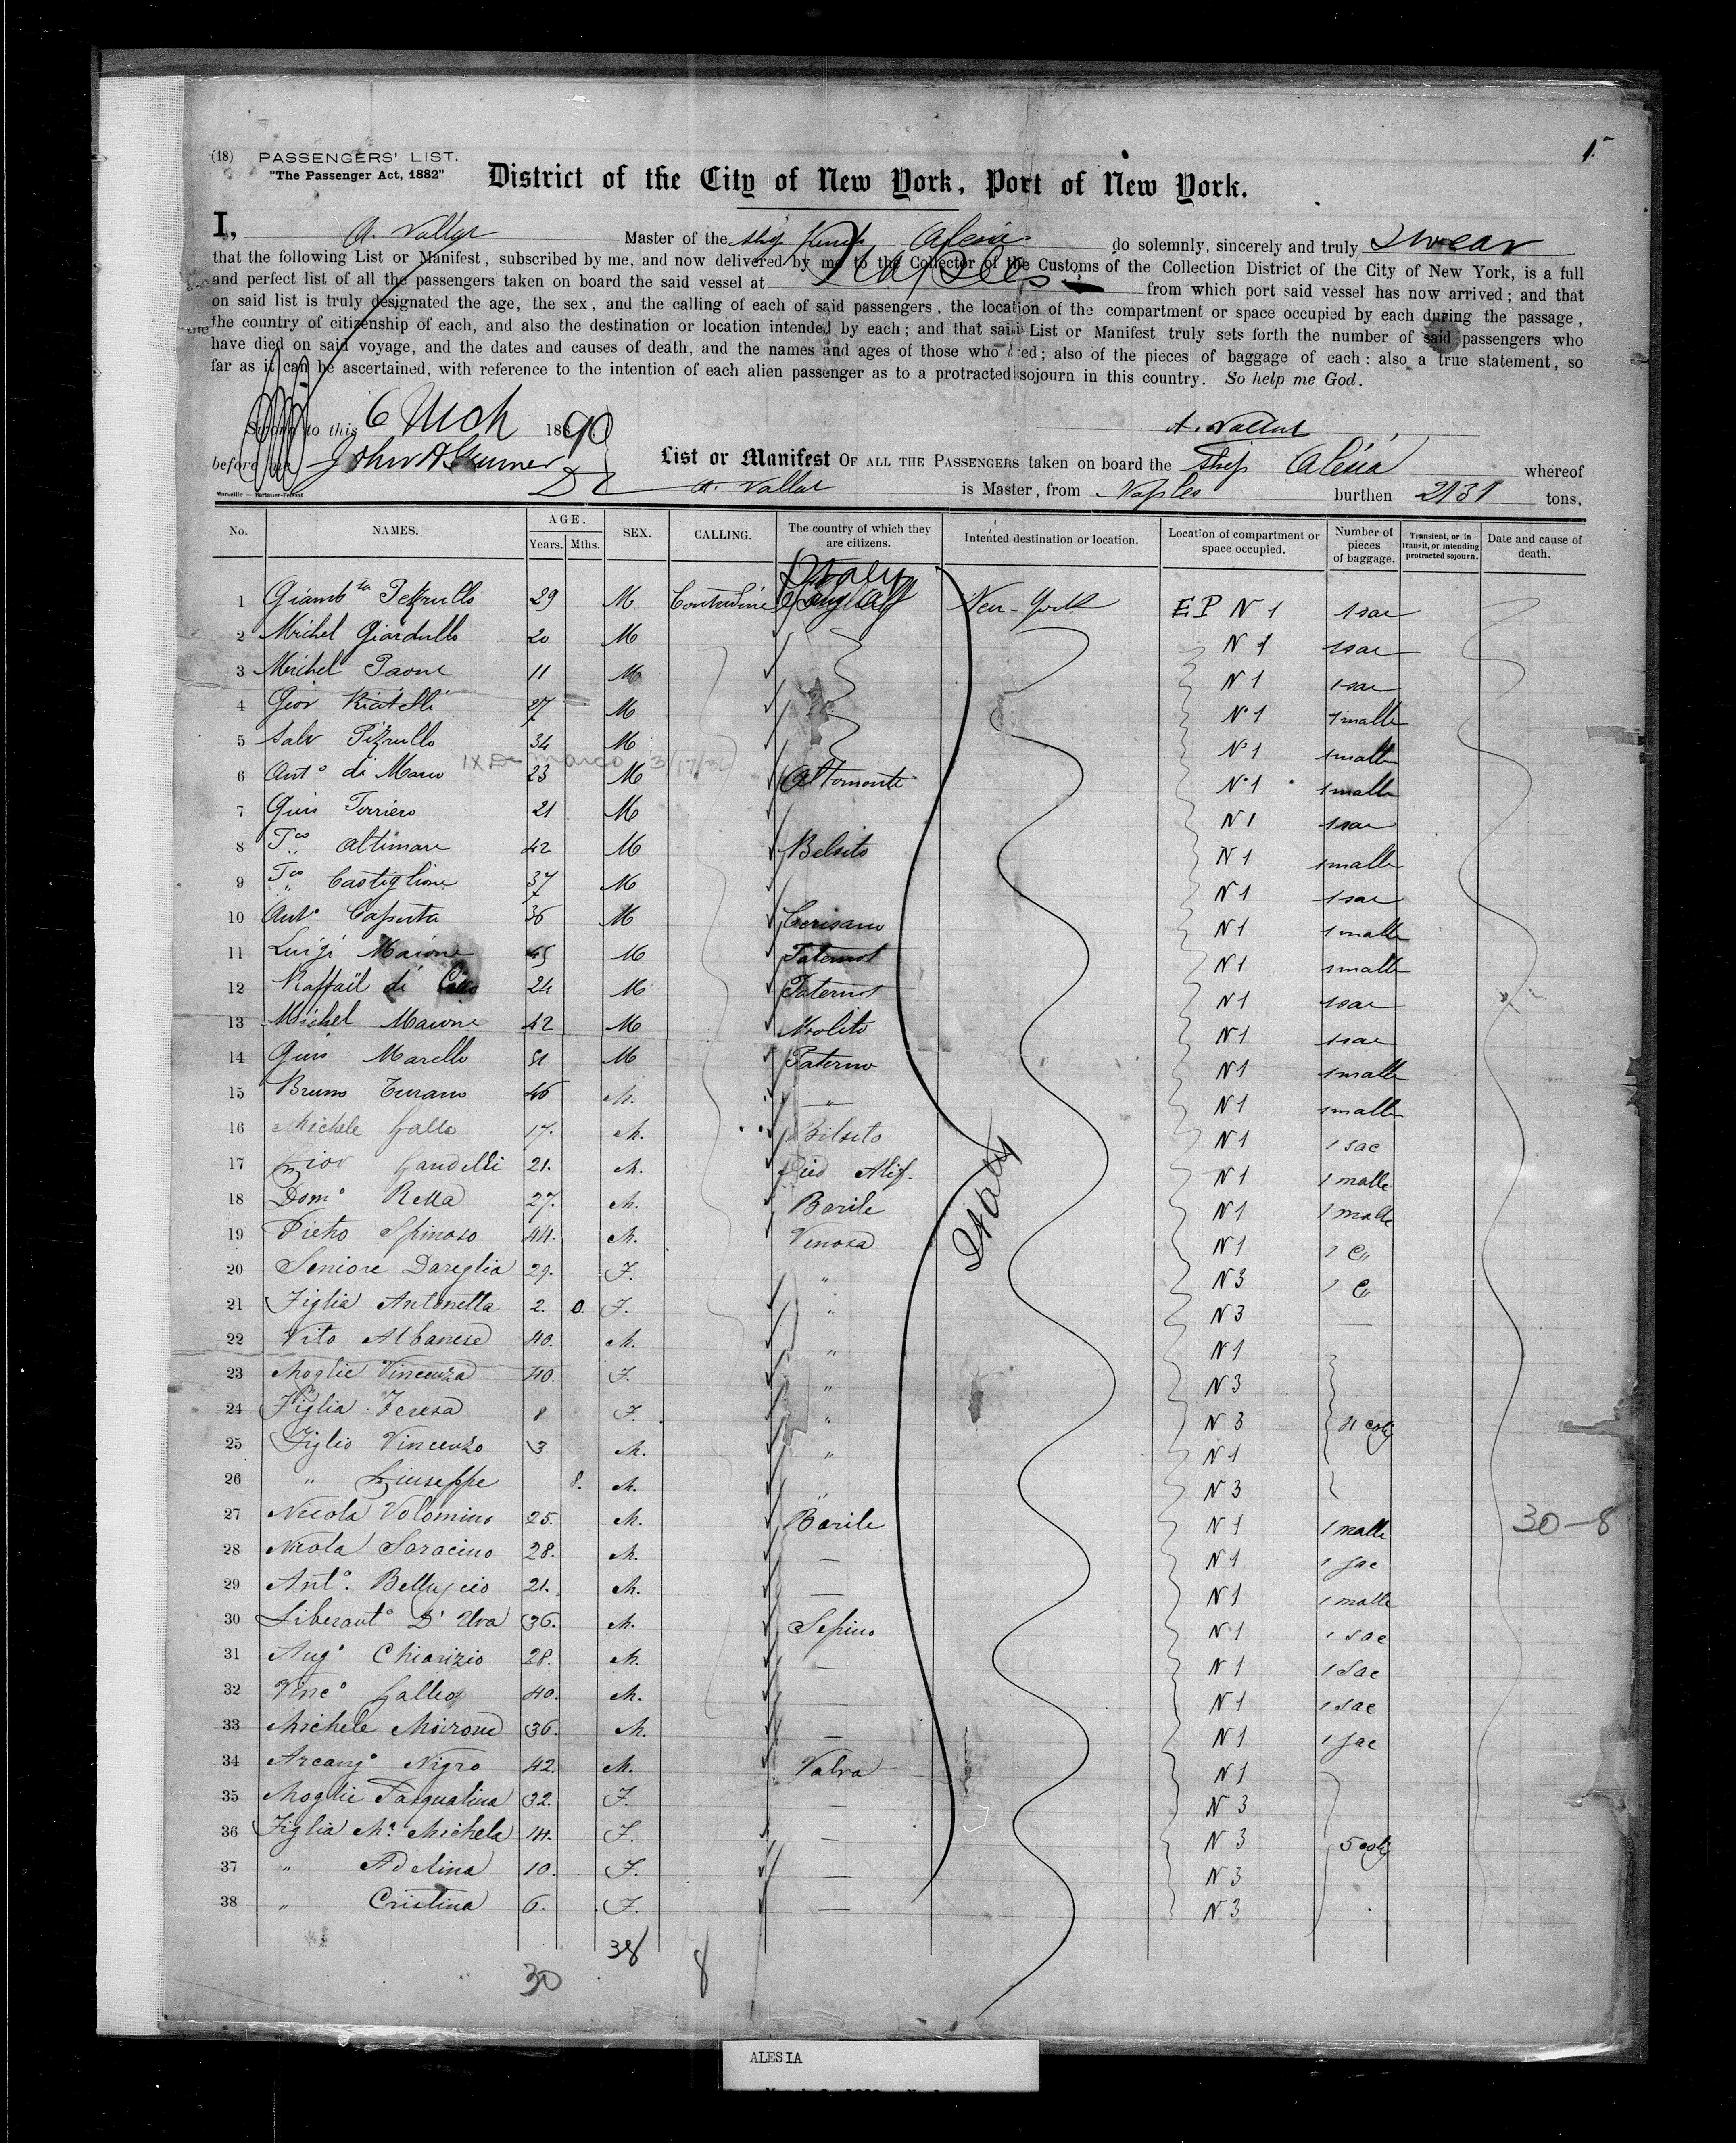 (18) PASSENGERS' LIST.
"The Passenger Act, 1882"
1.
District of the City of New York, Port of New York.
I, A. Vallat Master of the Ship Alesia do solemnly, sincerely and truly swear
that the following List or Manifest, subscribed by me, and now delivered by me to the Collector of the Customs of the Collection District of the City of New York, is a full
and perfect list of all the passengers taken on board the said vessel at Naples from which port said vessel has now arrived; and that
on said list is truly designated the age, the sex, and the calling of each of said passengers, the location of the compartment or space occupied by each during the passage,
the country of citizenship of each, and also the destination or location intended by each; and that said List or Manifest truly sets forth the number of said passengers who
have died on said voyage, and the dates and causes of death, and the names and ages of those who died; also of the pieces of baggage of each: also a true statement, so
far as it can be ascertained, with reference to the intention of each alien passenger as to a protracted sojourn in this country. So help me God.
Sworn to this 6 Mch 1890
A. Vallat
before me John A
List or Manifest OF ALL THE PASSENGERS taken on board the Ship Alésia whereof
A. Vallat is Master, from Naples burthen 2131 tons,
No. NAMES. AGE. Years. Mths. SEX. CALLING. The country of which they are citizens. Intented destination or location. Location of compartment or space occupied. Number of pieces of baggage. Transient, or in transit, or intending protracted sojourn. Date and cause of death.
Italy
1 Giamb ta Pezzullo 29 M New-York EP N 1 1 sac
2 Michel Giardullo 20 M N 1 1 sac
3 Michel Paone 11 M N 1 1 sac
4 Giov 27 M N 1 1 malle
5 Salv Pizzullo 34 M N 1 1 malle
6 Ant° di Marco 23 M Altomonte N 1 1 malle
1X De Marco 3/17/36
7 Gius Torriero 21 M N 1 1 sac
8 Fco Altimare 42 M Belsito N 1 1 malle
9 Fco Castiglione 37 M N 1 1 sac
10 Ant° Caputa 36 M Cerisano N 1 1 malle
11 Luigi Maione 45 M Paterno N 1 1 malle
12 Raffaël di 24 M Paterno N 1 1 sac
13 Michel Maione 42 M N 1 1 sac
14 Gius Marello 51 M Paterno N 1 1 malle
15 Bruno Turano 46 M. " N 1 1 malle
16 Michele Gallo 17. M. Bilsito N 1 1 sac
17 Giov Gaudelli 21. M. Pied Alif. N 1 1 malle
18 Dom° Retta 27. M. Barile N 1 1 malle
19 Pietro Spinoso 44. M. Venosa N 1 1 C"
20 Seniore Dareglia 29. F. " N 3 1 C"
21 Figlia Antonetta 2. 0. F. " N 3 —
22 Vito Albanese 40. M. " N 1
23 Moglie Vincenza 40. F. " N 3
24 Figlia Teresa 8 F. " N 3 4 colij
25 Figlio Vincenzo 3 M. " N 1
26 " Giuseppe 8. M. " N 3
27 Nicola Volomino 25. M. Barile N 1 1 malle
30-8
28 Nicola Saracino 28. M. — N 1 1 sac
29 Ant°. Belluscio 21. M. — N 1 1 malle
30 Liberant° D' Uva 36. M. Sepino N 1 1 sac
31 Aug° Chiarizio 28. M. — N 1 1 Sac
32 Vinc° Gallio 40. M. — N 1 1 sac
33 Michele Moirone 36. M. — N 1 1 sac
34 Arcang° Nigro 42. M. Valva N 1
35 Moglie Pasqualina 32. F. — N 3
36 Figlia Ma Michela 14. F. — N 3 5 colij
37 " Adelina 10. F. — N 3
38 " Cristina 6. F. — N 3
Italy
38
30
8
ALESIA